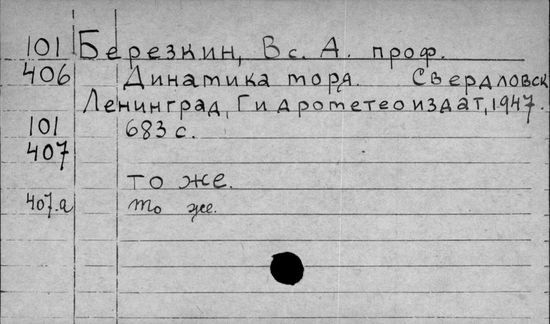 101 Березкин, Вс. А. проф.
406 Динамика моря. Свердловск
Ленинград, Гидрометеоиздат, 1947.
101 683 с.
407
то же.
407.а то же.